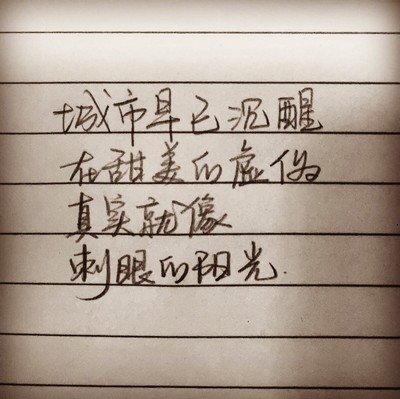 城市早已沉醒
在甜美的虚伪
真实就像
刺眼的阳光.